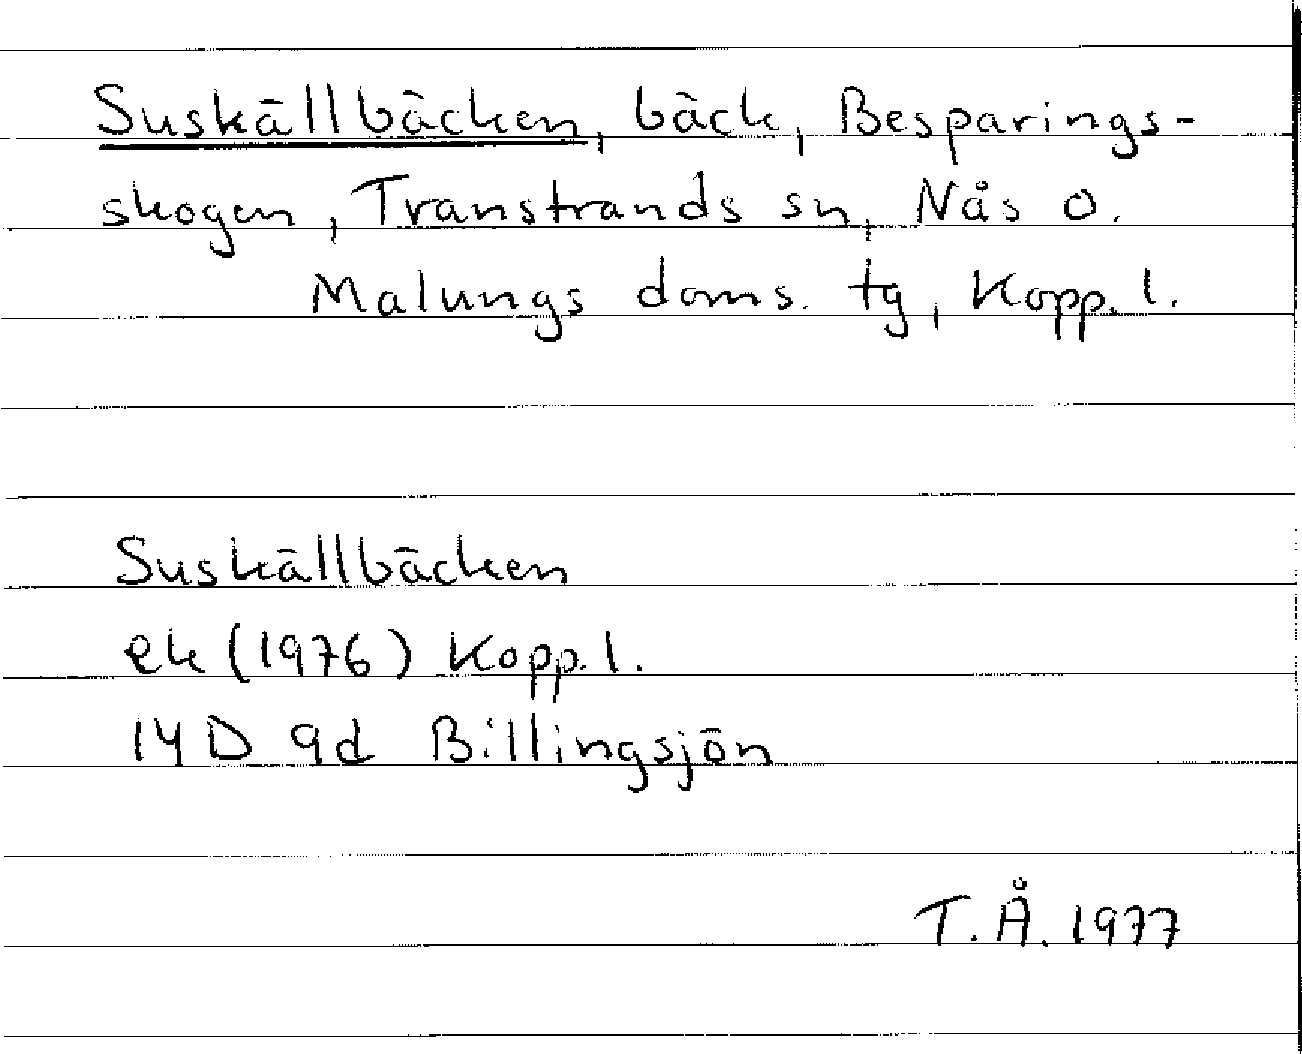 Suskällbäcken, bäck, Besparings-
skogen, Transtrands sn, Nås o.
Malungs doms. tg, Kopp. l.
Suskällbäcken
ek (1976) Kopp. l.
14 D 9d Billingsjön
T. Å. 1977